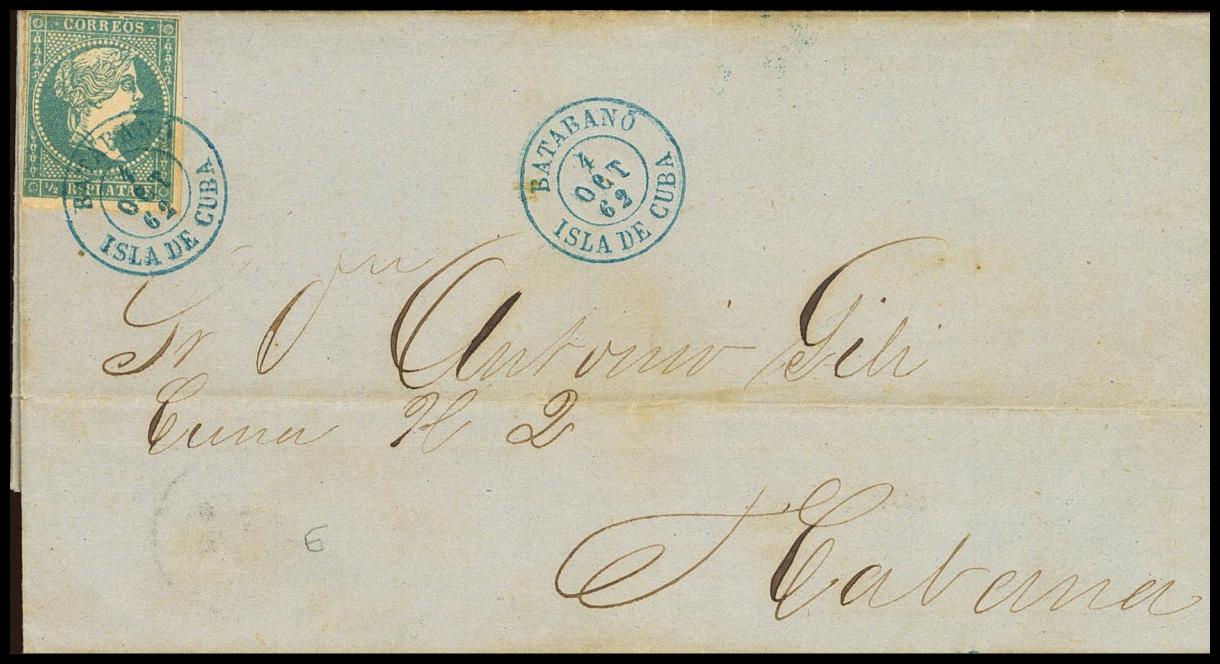 CORREOS
½ R. PLATA F.
BATABANÓ
4
OCT
62
ISLA DE CUBA
BATABANÓ
4
OCT
62
ISLA DE CUBA
Sr Dn Antonio Gili
Cuna N 2
Habana
6